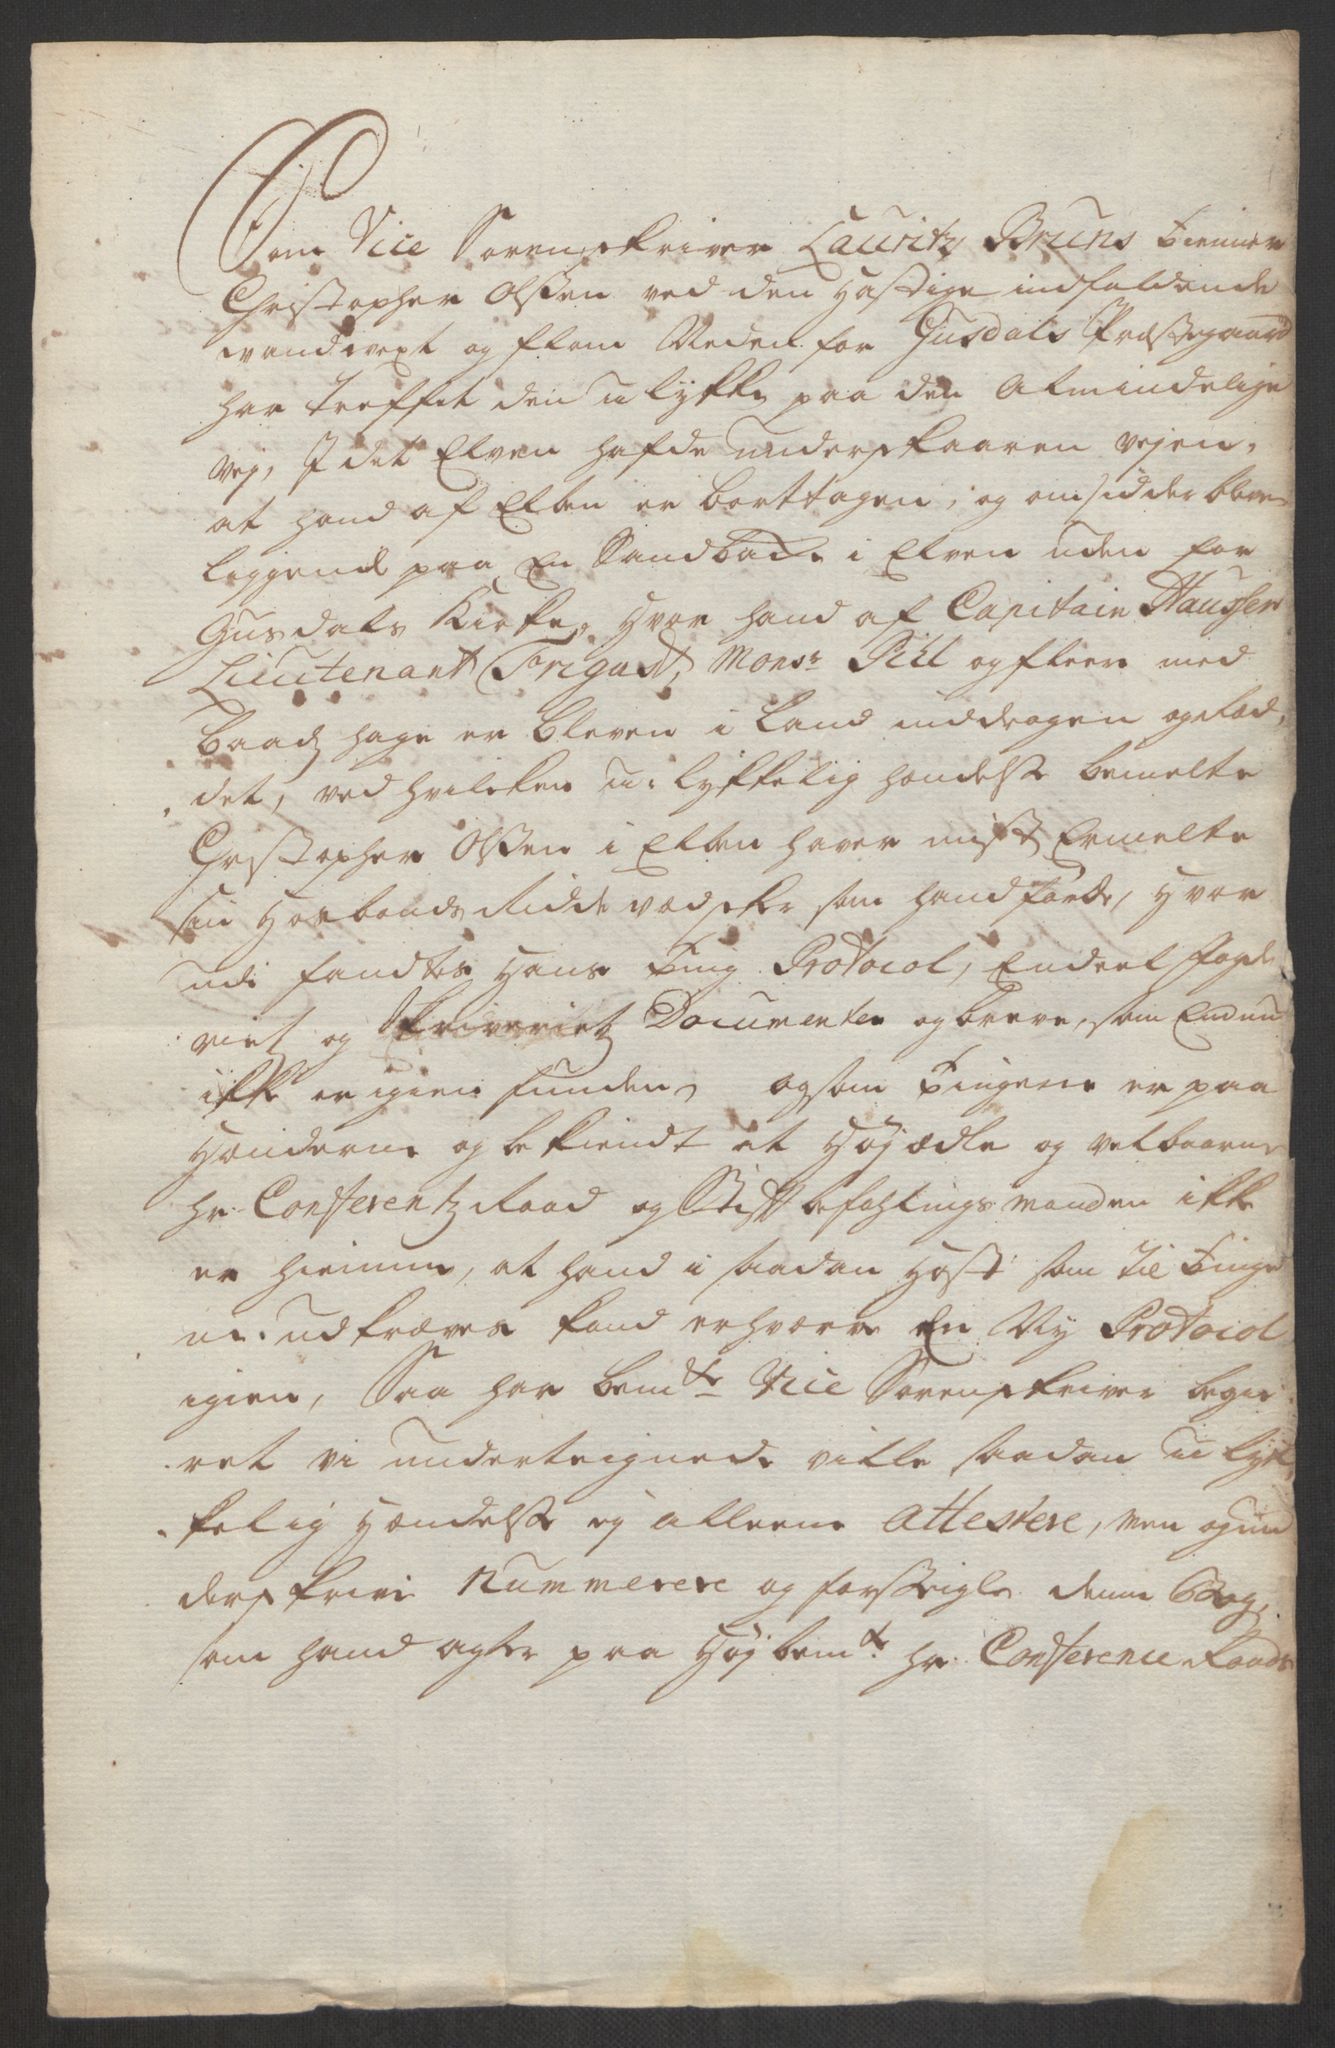 Som Vice Sorenskriver Lauritz Bruns tienner
Christopher Olssen ved den hastige indfaldende
vandvext og flom Neden for Gusdals Præstegaard
har treffet den ulykke paa den Almindelige
vej, I det Elven hafde underskaaren vejen,
at hand af Elven er borttagen, og omsidder bleve
liggende paa En Sandbak i Elven uden for
Gusdals Kirke, hvor hand af Capitain Haussen
Lieutenant Frigast, Monsr Pihl og fleere med
baadz hage er bleven i Land inddragen og
det, ved hvilcken u-lykkelig hendelse bemelte
Christopher Olssen i Elven haver mist Ermelte
sin Hosbonds Ridde vadsker som hand førte, hvor
udi fandtes Hans ting Protocol, Endeel fogde
riet og skriveriet Documenter og breve, som Endnu
ikke er igien funden, og som tingene er paa
Hænderne og bekiendt at Højædle og velbaarne
hr. Conferentz Raad og Stiftbefahlingsmanden ikke
er hiemme, at hand i saadan Hast som til tinge
ne udkræves kand erhverve En Ny Protocol
igien, Saa har bemte Vice Sorenskriver begie
ret vi underteignede ville saadan ulyk
kelig Hændelse ej alleene attestere, men og un
derskrive Nummerere og forseigle denne Bog,
som hand agter paa Højbemte hr. Conference Raads